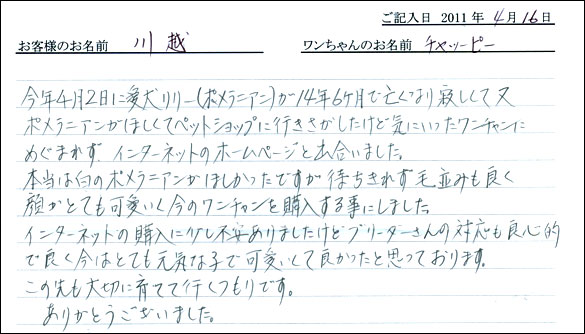 ご記入日 2011年 4月16日
お客様のお名前 川越 ワンちゃんのお名前 チャッピー
今年4月2日に愛犬リリー(ポメラニアン)が14年6ヶ月で亡くなり寂しくて又
ポメラニアンがほしくてペットショップに行きさがしたけど気にいったワンチャンに
めぐまれず、インターネットのホームページと出合いました。
本当は白のポメラニアンがほしかったですが待ちきれず毛並みも良く
顔がとても可愛いく今のワンチャンを購入する事にしました。
インターネットの購入に少し不安ありましたけどブリーダーさんの対応も良心的
で良く今はとても元気な子で可愛いくて良かったと思っております。
この先も大切に育てて行くつもりです。
ありがとうございました。